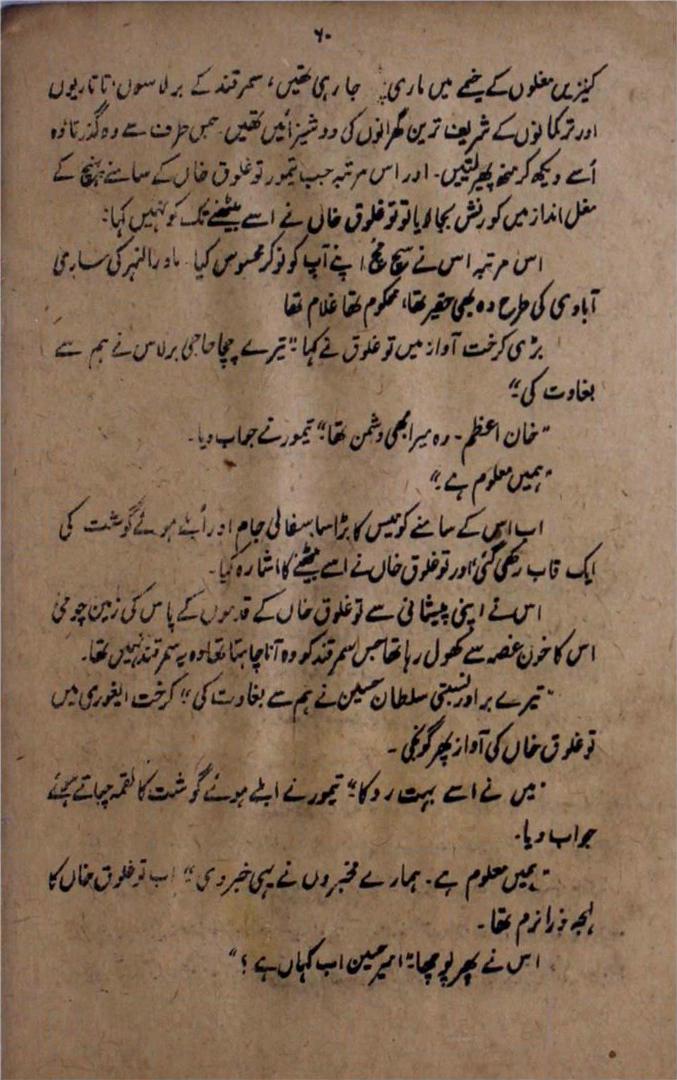 ۶۰
کنیزیں مغلوں کے خیمے میں ماری جا رہی تھیں، سمرقند کے برلاسوں، تاتاریوں
اور ترکمانوں کے شریف ترین گھرانوں کی دوشیزائیں تھیں۔ جس طرف سے وہ گذرتا وہ
اُسے دیکھ کر منھ پھیر لیتیں۔ اور اس مرتبہ جب تیمور توغلوق خاں کے سامنے پہنچ کے
مغل انداز میں کورنش بجا لایا تو توغلوق خاں نے اسے بیٹھنے تک کو نہیں کہا۔
اس مرتبہ اس نے سچ مچ اپنے آپ کو نوکر محسوس کیا۔ ماورالنہر کی ساری
آبادی کی طرح وہ بھی حقیر تھا، محکوم تھا غلام تھا
بڑی کرخت آواز میں توغلوق نے کہا "تیرے چچا حاجی برلاس نے ہم سے
بغاوت کی"
"خان اعظم۔ وہ میرا بھی دشمن تھا" تیمور نے جواب دیا۔
"ہمیں معلوم ہے"
اب اس کے سامنے کومیس کا بڑا سا سفالی جام اور اُبلے ہوئے گوشت کی
ایک قاب رکھی گئی اور توغلوق خاں نے اسے بیٹھنے کا اشارہ کیا۔
اس نے اپنی پیشانی سے توغلوق خاں کے قدموں کے پاس کی زمین چومی
اس کا خون غصہ سے کھول رہا تھا جس سمرقند کو وہ آنا چاہتا تھا وہ یہ سمرقند نہیں تھا۔
"تیرے برادر نسبتی سلطان حسین نے ہم سے بغاوت کی" کرخت ایغوری میں
توغلوق خاں کی آواز پھر گونجی۔
"میں نے اسے بہت روکا" تیمور نے ابلے ہوئے گوشت کا لقمہ چباتے ہوئے
جواب دیا۔
"ہمیں معلوم ہے۔ ہمارے مخبروں نے یہی خبر دی" اب توغلوق خاں کا
لہجہ ذرا نرم تھا۔
اس نے پھر پوچھا "امیر حسین اب کہاں ہے؟"